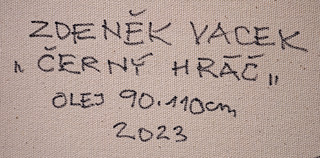 ZDENĚK VACEK
„ČERNÝ HRÁČ„
OLEJ 90.110cm
2023